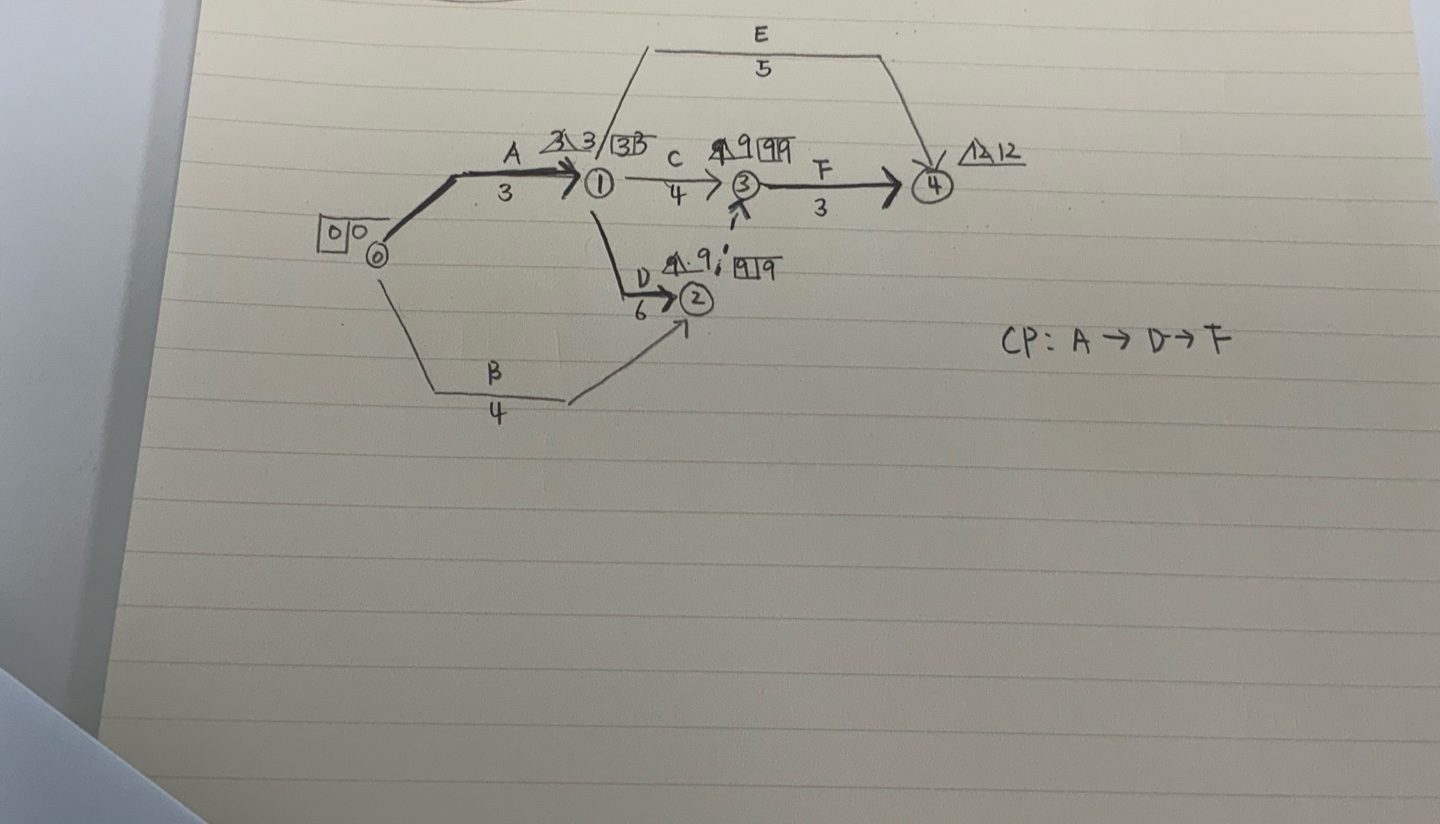 E
5
A 3 3 3 3 C 9 9 9 9 F 12 12
3 1 4 3 3 4
0 0
0
D 9 9 9 9
6 2
CP: A → D → F
B
4